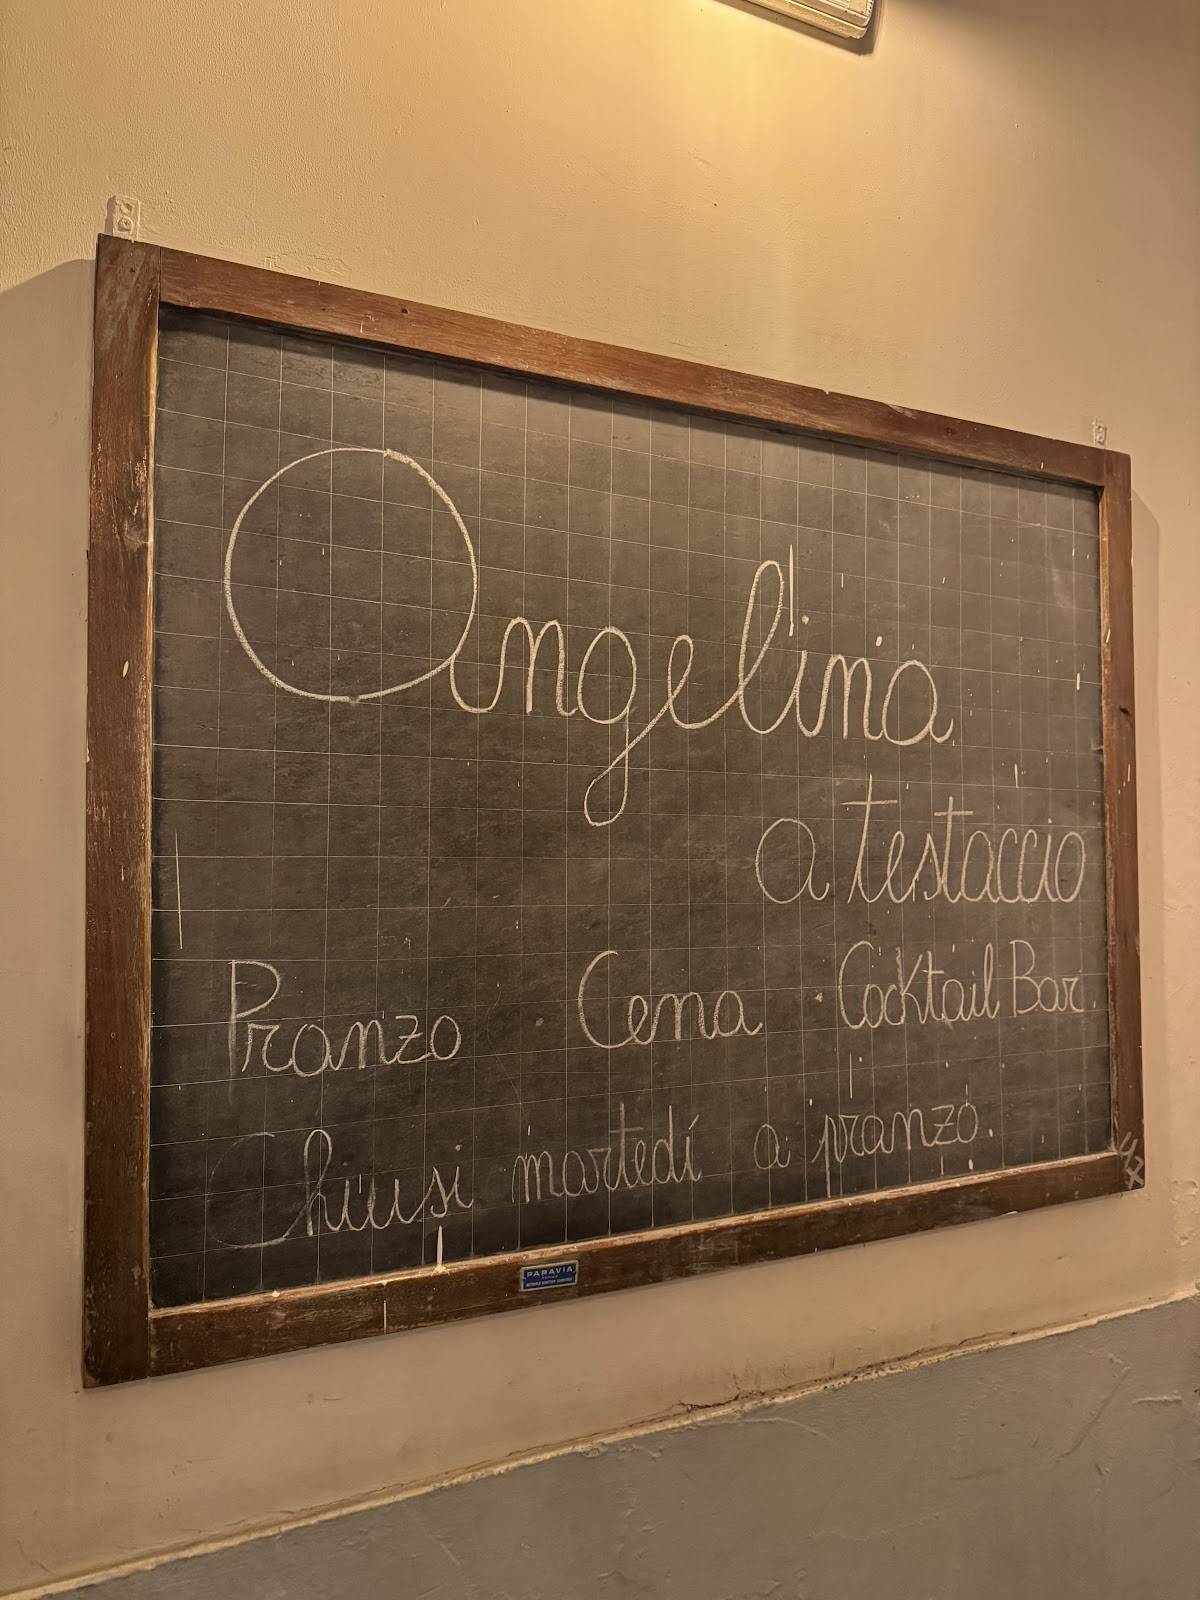 Angelina
a testaccio
Pranzo Cena Cocktail Bar.
Chiusi martedí a pranzo.
PARAVIA